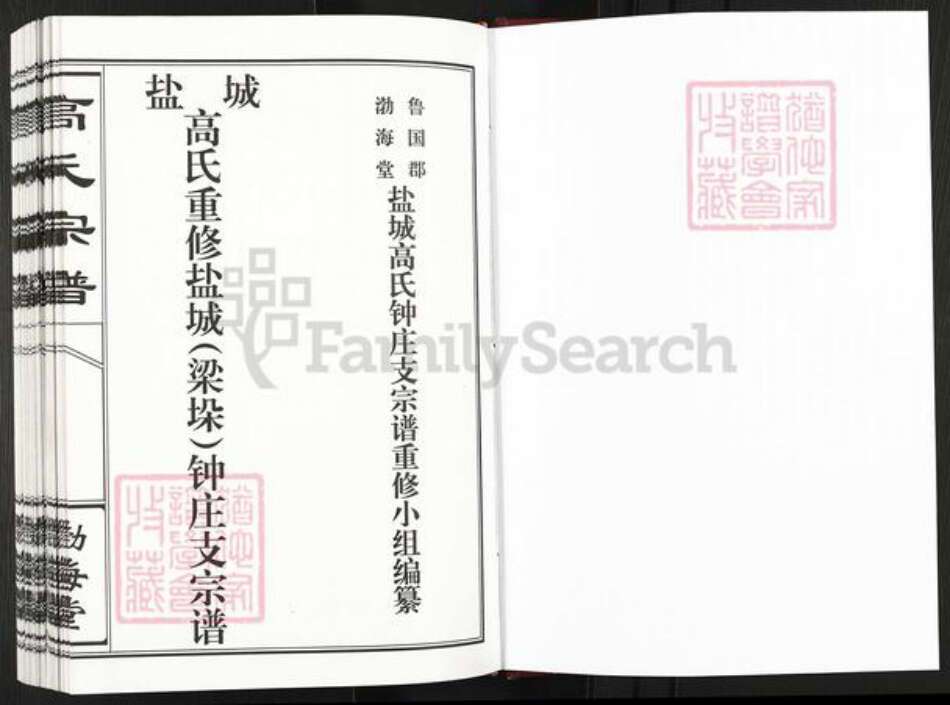 鲁国郡
渤海堂
盐城高氏钟庄支宗谱重修小组编纂
盐城
高氏重修盐城(梁垛)钟庄支宗谱
高氏宗谱
渤海堂
猶他家
譜學會
收藏
猶他家
譜學會
收藏
FamilySearch